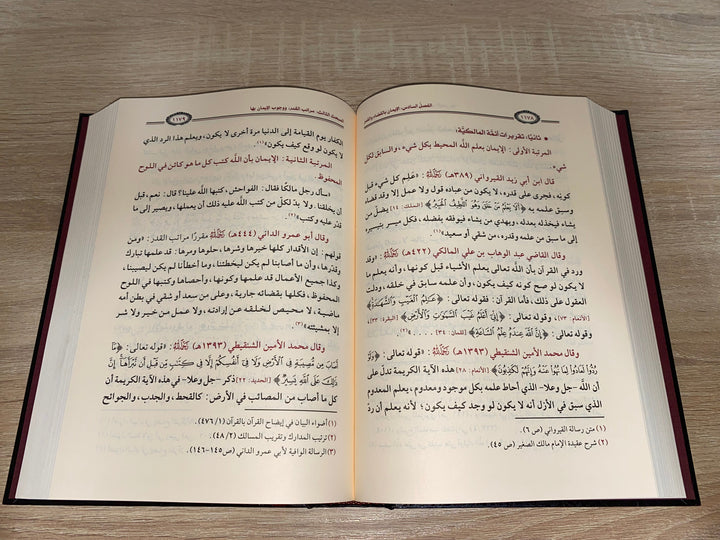 ١١٧٨
الفصل السادس: الإيمان بالقضاء والقدر
• ثانيًا: تقريرات أئمة المالكية:
المرتبة الأولى: الإيمان بعلم الله المحيط بكل شيء، والسابق لكل
شيء.
قال ابن أبي زيد القيرواني (٣٨٩هـ) رحمه الله: «علم كل شيء قبل
كونه، فجرى على قدره، لا يكون من عباده قول ولا عمل إلا وقد قضاه
وسبق علمه به ﴿أَلَا يَعْلَمُ مَنْ خَلَقَ وَهُوَ اللَّطِيفُ الْخَبِيرُ﴾ [الملك: ١٤] يضل من
يشاء فيخذله بعدله، ويهدي من يشاء فيوفقه بفضله، فكل ميسر بتيسيره
إلى ما سبق من علمه وقدره، من شقي أو سعيد»(١).
وقال القاضي عبد الوهاب بن علي المالكي (٤٢٢هـ) رحمه الله: «وقد
ورد في القرآن بأن الله تعالى يعلم الأشياء قبل كونها، وأنه يعلم ما
لا يكون لو صح كونه كيف يكون، وأن علمه سابق في خلقه، ودلت
العقول على ذلك، فأما القرآن: فقوله تعالى: ﴿عَالِمُ الْغَيْبِ وَالشَّهَادَةِ﴾
[الأنعام: ٧٣]، وقوله تعالى: ﴿إِنِّي أَعْلَمُ غَيْبَ السَّمَوَاتِ وَالْأَرْضِ﴾ [البقرة: ٣٣]،
وقوله تعالى: ﴿إِنَّ اللَّهَ عِندَهُ عِلْمُ السَّاعَةِ﴾ [لقمان: ٣٤]. . .»(٢).
وقال محمد الأمين الشنقيطي (١٣٩٣هـ) رحمه الله: «قوله تعالى: ﴿وَلَوْ
رُدُّوا لَعَادُوا لِمَا نُهُوا عَنْهُ وَإِنَّهُمْ لَكَاذِبُونَ﴾ [الأنعام: ٢٨] هذه الآية الكريمة تدل على
أن الله -جل وعلا- الذي أحاط علمه بكل موجود ومعدوم، يعلم المعدوم
الذي سبق في الأزل أنه لا يكون لو وجد كيف يكون؛ لأنه يعلم أن رد
(١) متن رسالة القيرواني (ص ٦).
(٢) شرح عقيدة الإمام مالك الصغير (ص ٤٥).
المبحث الثالث: مراتب القدر، ووجوب الإيمان بها
١١٧٩
الكفار يوم القيامة إلى الدنيا مرة أخرى لا يكون، ويعلم هذا الرد الذي
لا يكون لو وقع كيف يكون»(١).
المرتبة الثانية: الإيمان بأن الله كتب كل ما هو كائن في اللوح
المحفوظ.
«سأل رجل مالكًا فقال: الفواحش، كتبها الله علينا؟ قال: نعم، قبل
أن يخلقنا. ولا بد لكل من كتب الله عليه ذلك أن يعملها، ويصير إلى ما
قدر عليه وكتب»(٢).
وقال أبو عمرو الداني (٤٤٤هـ) رحمه الله مقررًا مراتب القدر: «ومن
قولهم: إن الأقدار كلها خيرها وشرها، حلوها ومرها: قد علمها تبارك
وقدرها، وأن ما أصابنا لم يكن ليخطئنا، وما أخطأنا لم يكن ليصيبنا،
وكذا جميع الأعمال قد علمها وكونها، وأحصاها وكتبها في اللوح
المحفوظ، فكلها بقضائه جارية، وعلى من سعد أو شقي في بطن أمه
ماضية، لا محيص لخلقه عن إرادته، ولا عمل من خير ولا شر
إلا بمشيئته»(٣).
وقال محمد الأمين الشنقيطي (١٣٩٣هـ) رحمه الله: «قوله تعالى: ﴿مَا
أَصَابَ مِن مُّصِيبَةٍ فِي الْأَرْضِ وَلَا فِي أَنفُسِكُمْ إِلَّا فِي كِتَابٍ مِّن قَبْلِ أَن نَّبْرَأَهَا إِنَّ
ذَلِكَ عَلَى اللَّهِ يَسِيرٌ﴾ [الحديد: ٢٢] ذكر -جل وعلا- في هذه الآية الكريمة أن
كل ما أصاب من المصائب في الأرض: كالقحط، والجدب، والجوائح
(١) أضواء البيان في إيضاح القرآن بالقرآن (٤٧٦/١).
(٢) ترتيب المدارك وتقريب المسالك (٤٨/٢).
(٣) الرسالة الوافية لأبي عمرو الداني (ص١٤٥-١٤٦).